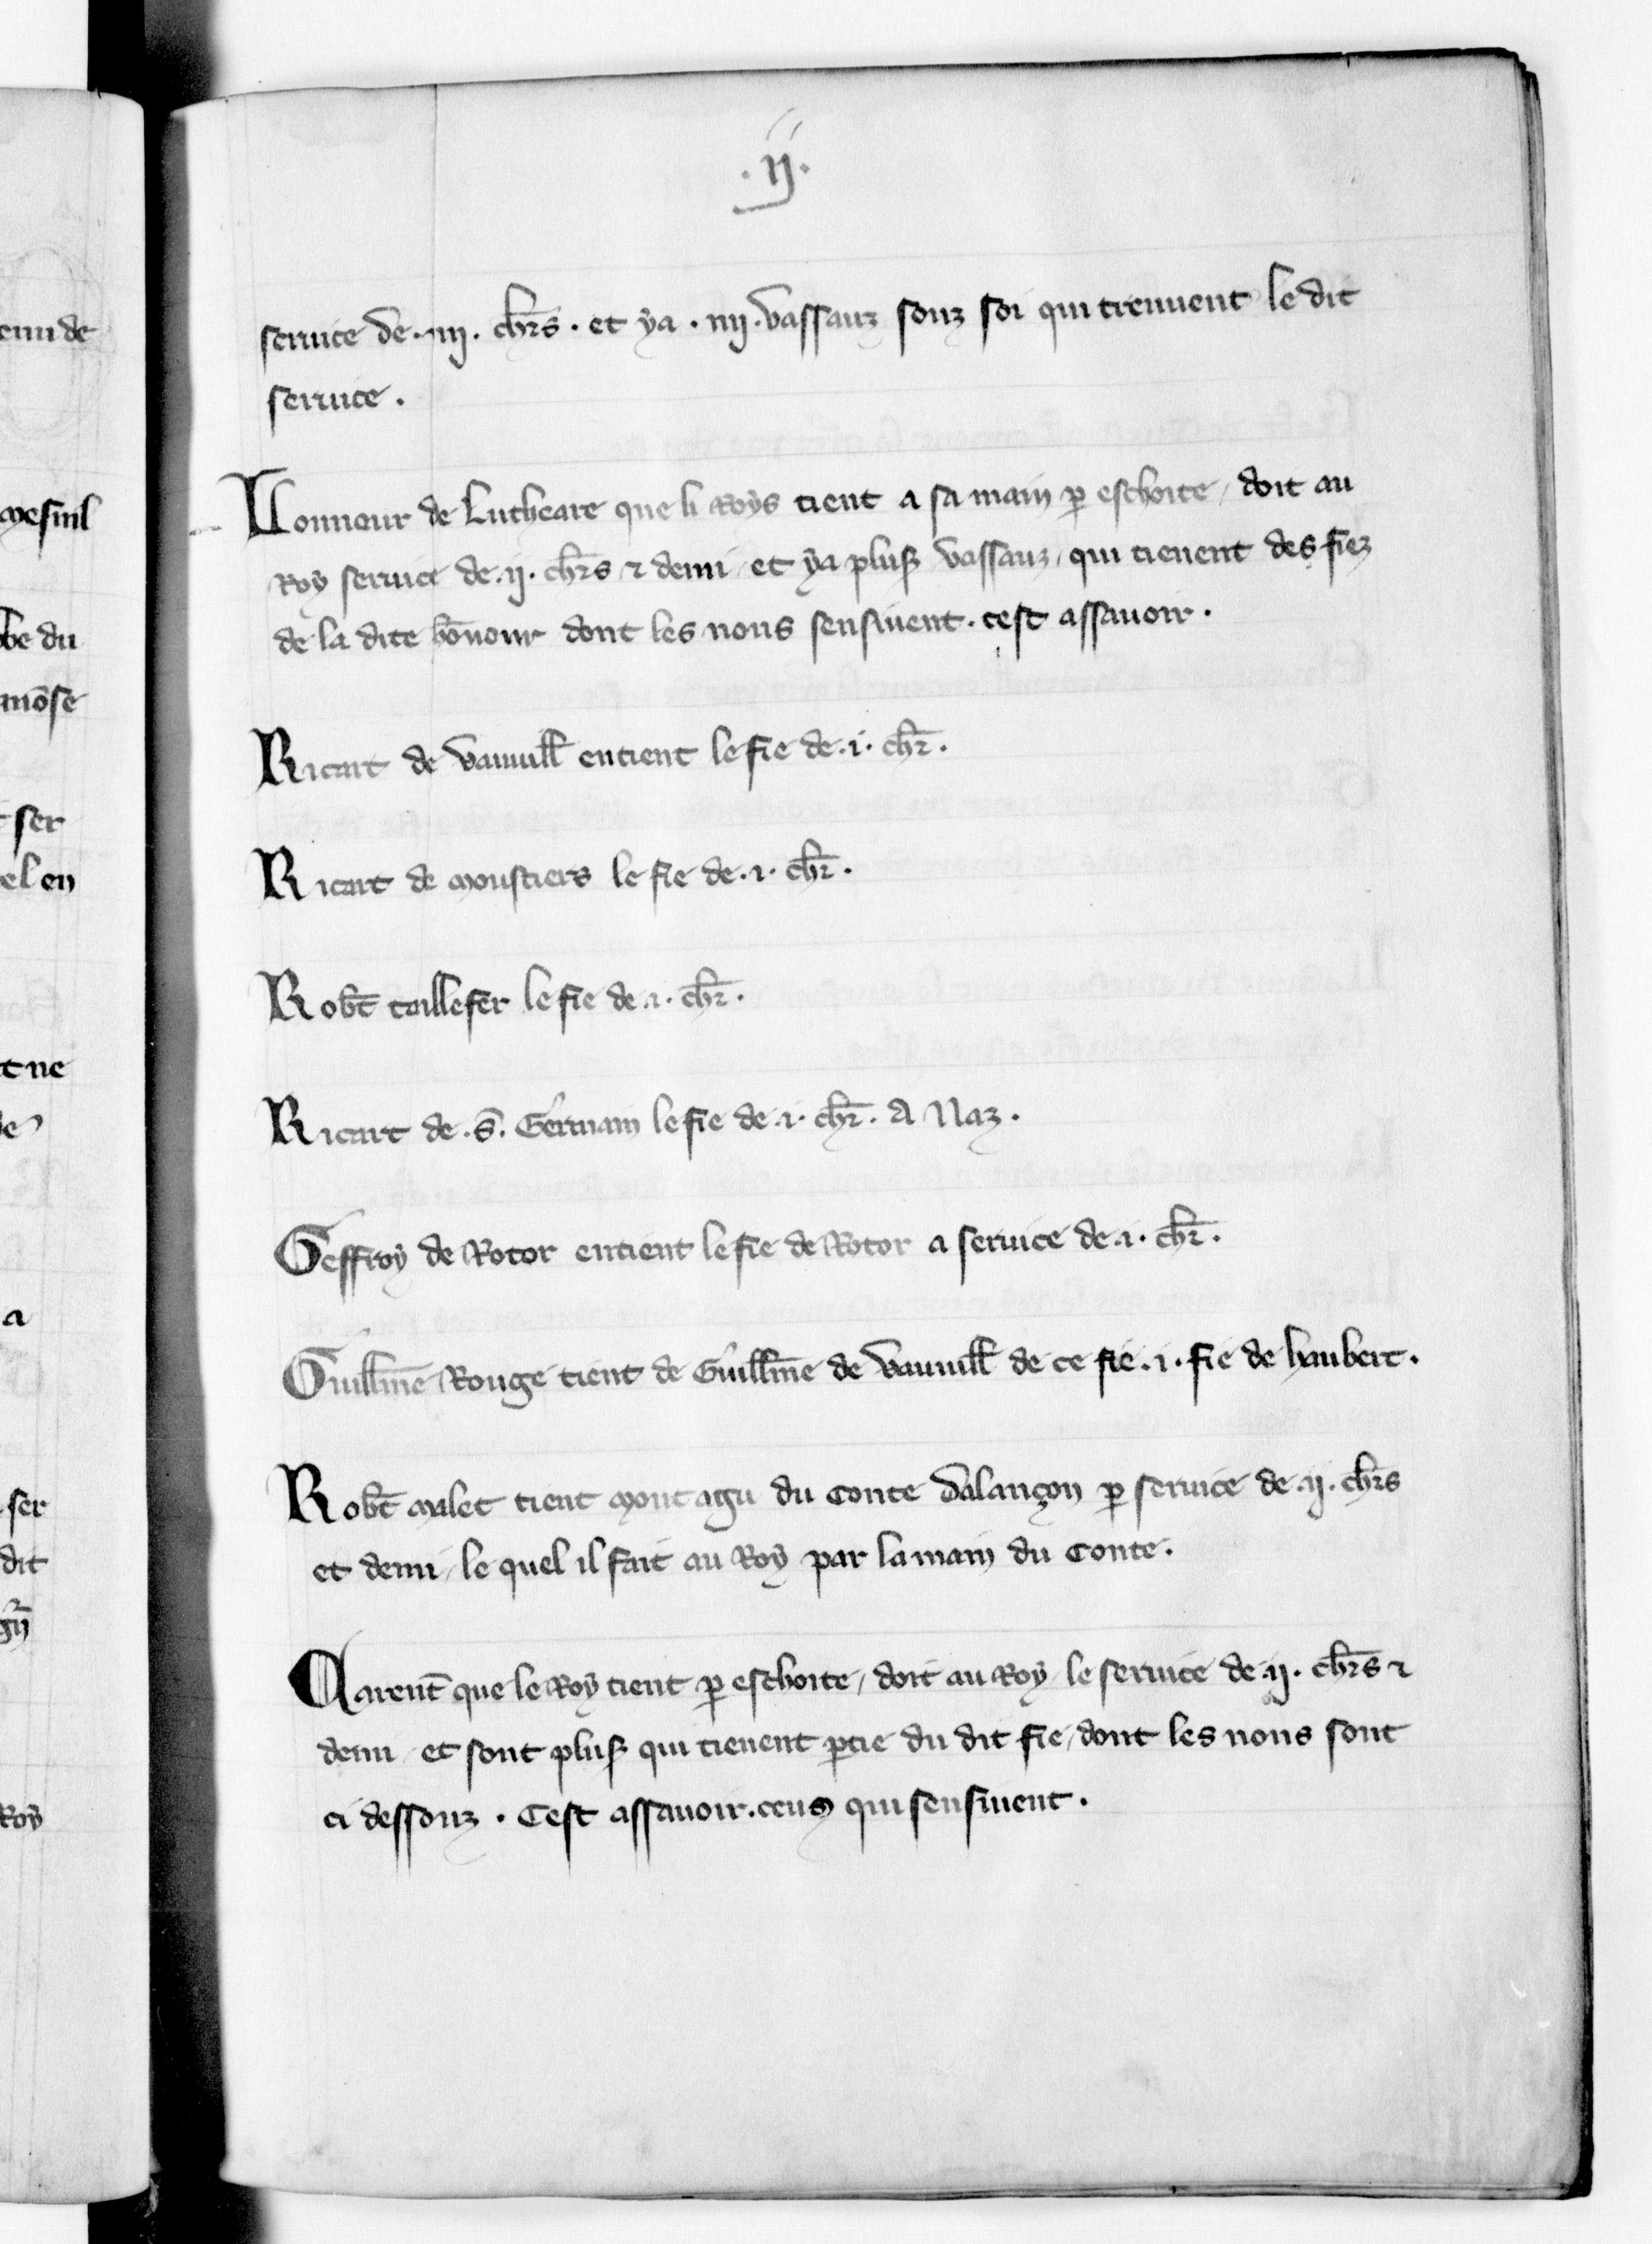 .ij.
seruice de .iiij. chrs̄ . et ya . iiij . vassauz souz soi qui treuuent le dit
seruice .
Lonnour de Lutheare que li Roys tient a sa main p̱ eschoite / doit au
Roy seruice de .ij. chrs̄ ⁊ demi / et ya plus̄ vassauz / qui tienent des fiez
de la dite hōnour dont les nons sensiuent . cest assauoir .
Ricart de vauuill̄ entient le fie de .i. chr̄ .
Ricart de moustiers le fie de .i. chr̄ .
Rob̄t taillefer le fie de .i. chr̄ .
Ricart de .S̄. Germain le fie de .i. chr̄ . A Naz .
Geffroy de Rotor entient le fie de Rotor a seruice de .i. chr̄ .
Guill̄me Rouge tient de Guill̄me de vauuill̄ de ce fie .i. fie de haubert .
Rob̄t malet tient mont agu du conte dalançon p̱ seruice de .ij. chrs̄
et demi / le quel il fait au Roy par la main du conte .
Qarent̄ que le Roy tient p̱ eschoite / doit au Roy le seruice de .ij. chrs̄ ⁊
demi / et sont plus̄ qui tienent p̱tie du dit fie / dont les nons sont
ci dessouz . Cest assauoir . ceus qui sensiuent .